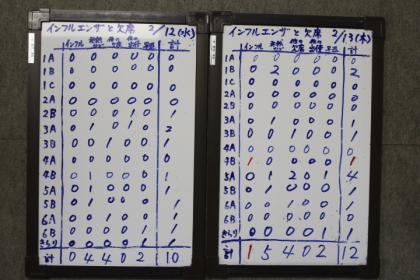 インフルエンザと欠席 2/12(水)
インフル 発熱 他の欠席 他の出停 早退 計
1A 0 0 0 0 0 0
1B 0 0 0 0 0 0
1C 0 0 0 0 0 0
2A 0 0 0 0 0 0
2B 0 0 0 1 0 1
3A 0 1 0 1 0 2
3B 0 0 1 0 0 1
4A 0 0 0 0 0
4B 0 0 0 1
5A 0 1 0 0 0 1
5B 0 1 0 0 0 1
6A 0 1 0 0 1
6B 0 0 1 0 0 1
きらり 0 0 1 0 0 1
計 0 4 4 0 2 10
インフルエンザと欠席 2/13(木)
インフル 発熱 他の欠席 他の出停 早退 計
1A 0 0 0 0 0 0
1B 0 2 0 0 0 2
1C 0 0 0 0 0 0
2A 0 0 0 0 0 0
2B 0 0 0 0 0 0
3A 0 1 0 0 0 1
3B 0 0 1 0 0 1
4A 0 0 0 0 0 0
4B 1 0 0 0 0 1
5A 0 1 2 0 1 4
5B 0 1 0 0 0 1
6A 0 0 1 0 0 1
6B 0 0 0 0 0 0
きらり 0 0 0 0 1 1
計 1 5 4 0 2 12